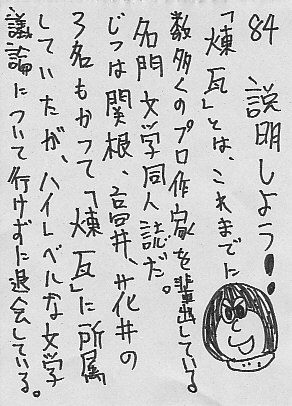 84 説明しよう!
「煉瓦」とは、これまでに
数多くのプロ作家を輩出している
名門文学同人誌だ。
じつは関根、宮井、花井の
3名もかつて「煉瓦」に所属
していたが、ハイレベルな文学
議論について行けずに退会している。